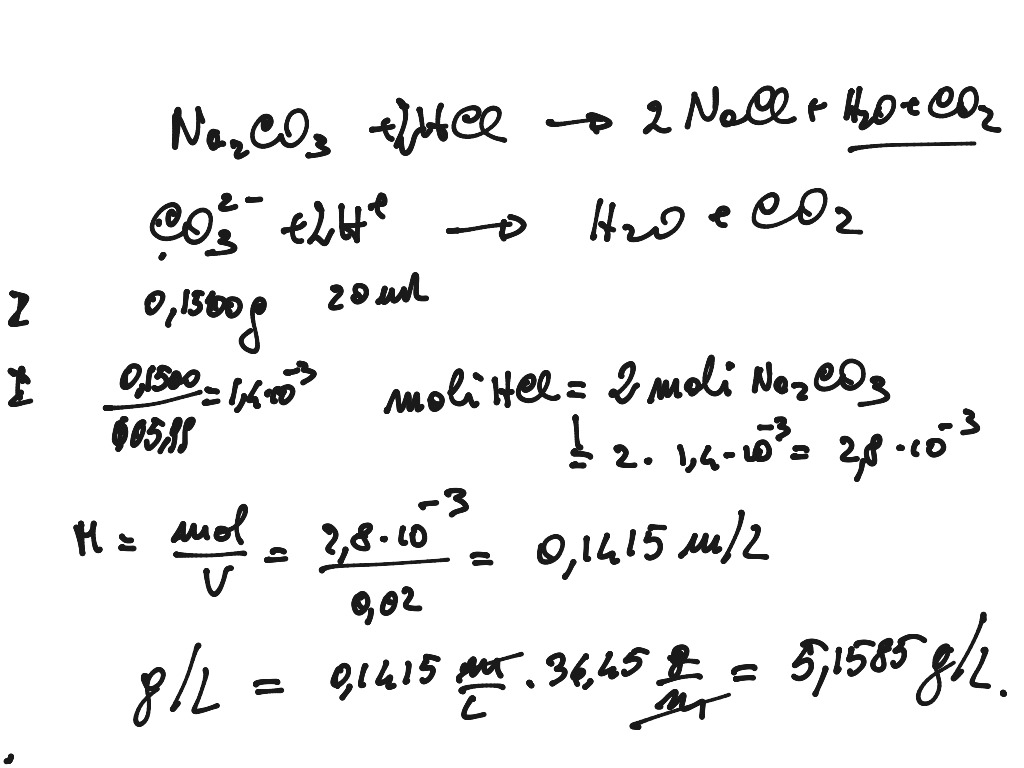 Na₂CO₃ + 2HCl → 2 NaCl + H₂O + CO₂
CO₃²⁻ + 2H⁺ → H₂O + CO₂
I 0,1500g 20 mL
I 0,1500/105,99 = 1,4·10⁻³ moli HCl = 2 moli Na₂CO₃
= 2 · 1,4·10⁻³ = 2,8·10⁻³
M = mol/V = 2,8·10⁻³/0,02 = 0,1415 m/L
g/L = 0,1415 m/L · 36,45 g/m = 5,1585 g/L.